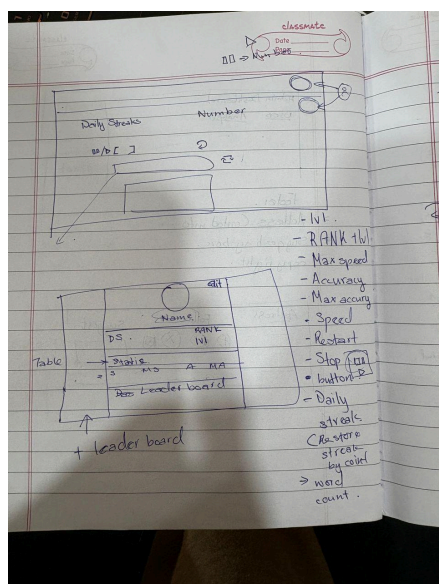 classmate
Date
Page
Daily Streaks
Number
- lvl.
- RANK + lvl
- Max speed
- Accuracy
- Max accury
• Speed
- Restart
- Stop
• button
- Daily
streak
(Restore
streak
by coin)
→ word
count.
edit
Name
DS.
RANK
lvl
Table
Static
S MS A MA
Leader board
+ leader board